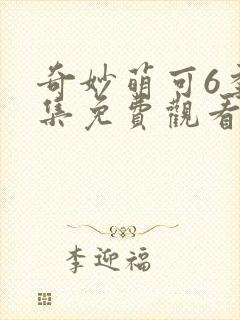 奇妙萌可6季
集免費觀看
李迎福